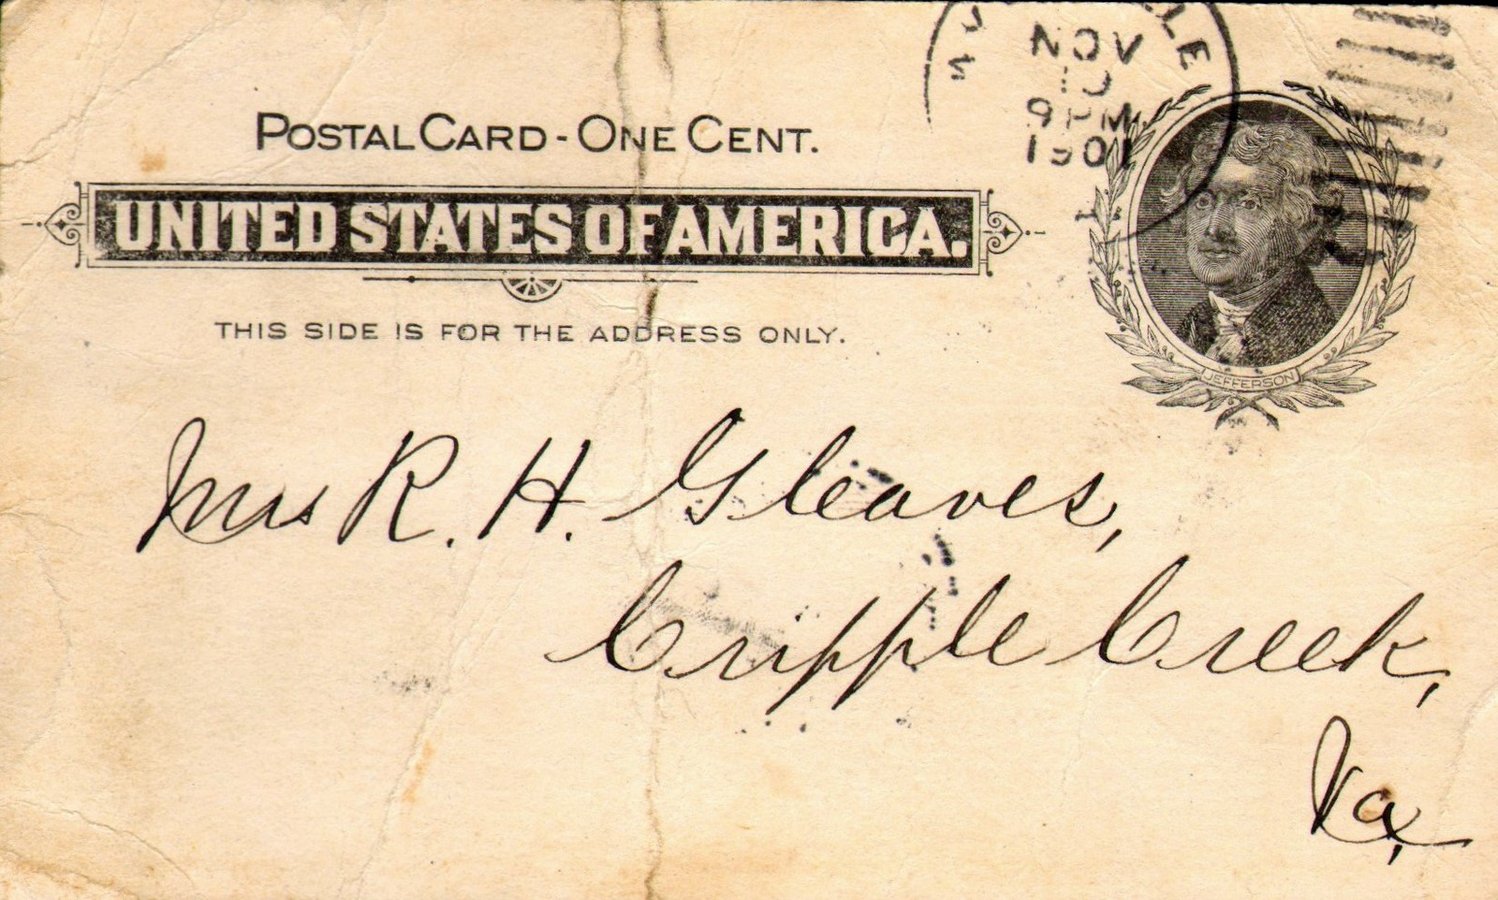 NOV
9PM
1901
POSTAL CARD - ONE CENT.
UNITED STATES OF AMERICA.
THIS SIDE IS FOR THE ADDRESS ONLY.
JEFFERSON
Mrs R. H. Gleaves,
Cripple Creek,
Va,